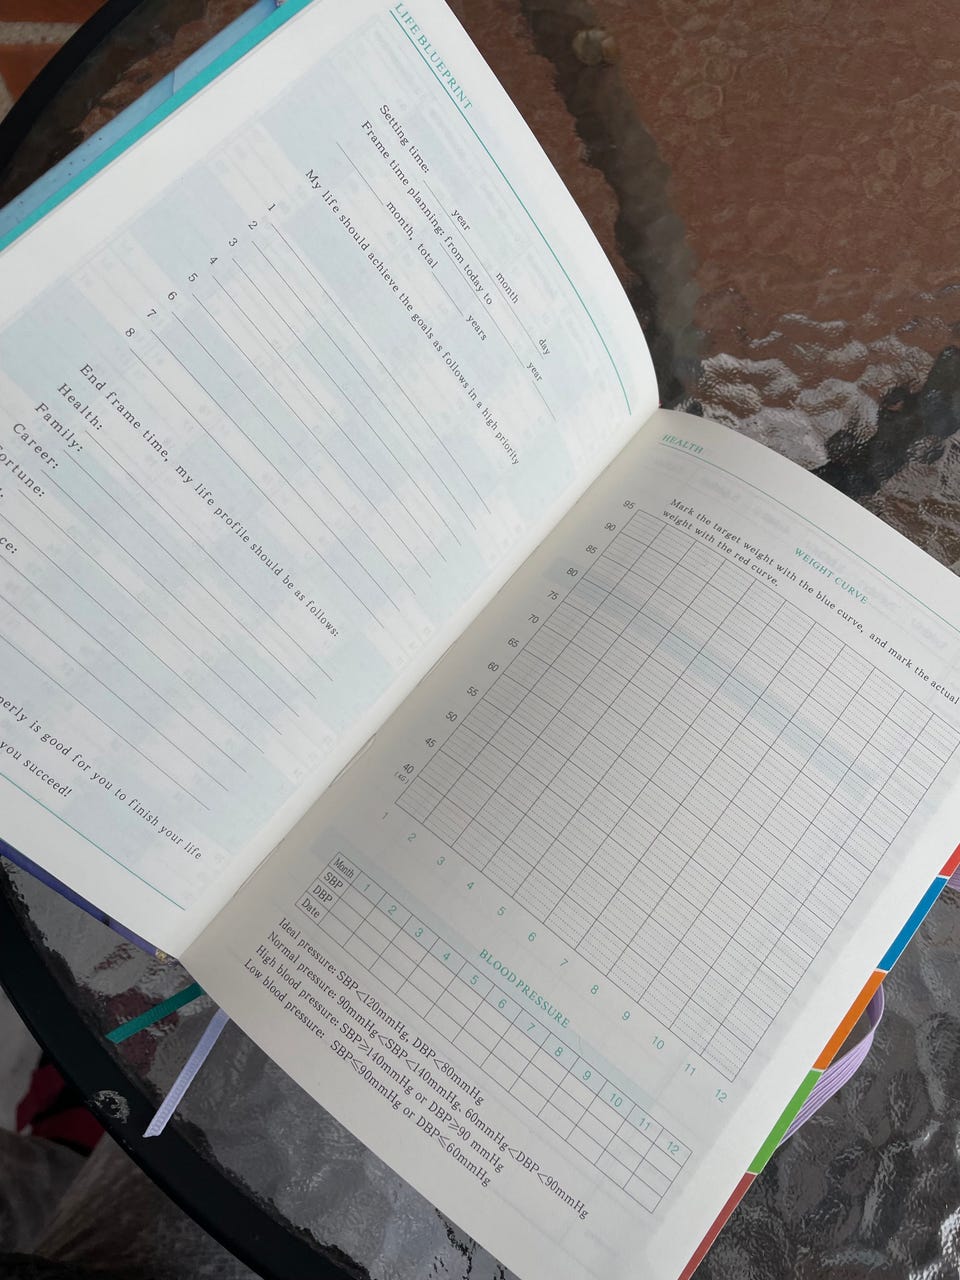 LIFE BLUEPRINT
Setting time: year month day
Frame time planning: from today to year
month, total years
My life should achieve the goals as follows in a high priority
1
2
3
4
5
6
7
8
End frame time, my life profile should be as follows:
Health:
Family:
Career:
ortune:
ce:
perly is good for you to finish your life
you succeed!
HEALTH
WEIGHT CURVE
Mark the target weight with the blue curve, and mark the actual
weight with the red curve.
95
90
85
80
75
70
65
60
55
50
45
40
(KG)
1 2 3 4 5 6 7 8 9 10 11 12
BLOOD PRESSURE
Month 1 2 3 4 5 6 7 8 9 10 11 12
SBP
DBP
Date
Ideal pressure: SBP<120mmHg, DBP<80mmHg
Normal pressure: 90mmHg<SBP<140mmHg, 60mmHg<DBP<90mmHg
High blood pressure: SBP≥140mmHg or DBP≥90 mmHg
Low blood pressure: SBP≤90mmHg or DBP≤60mmHg